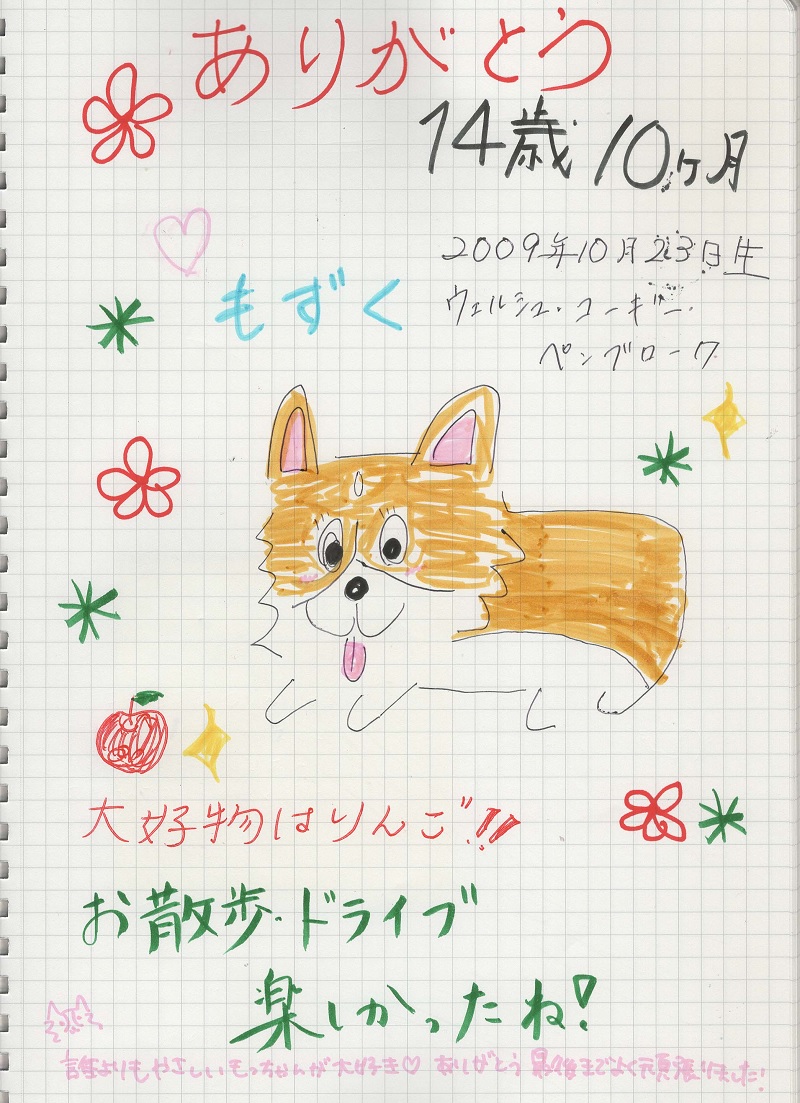 ありがとう
14歳10ヶ月
2009年10月23日生
もずく
ウェルシュ・コーギー・
ペンブローク
大好物はりんご!!
お散歩・ドライブ
楽しかったね!
誰よりもやさしいもっちゃんが大好き♡ ありがとう 最後までよく頑張りました!